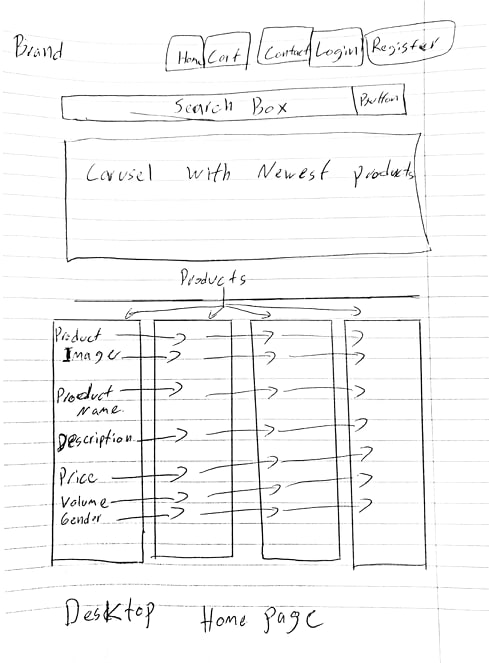 Brand
Home Cart Contact Login Register
Search Box Button
Carusel with Newest products
Products
Product
Image
Product
Name
Description
Price
Volume
Gender
Desktop Home page